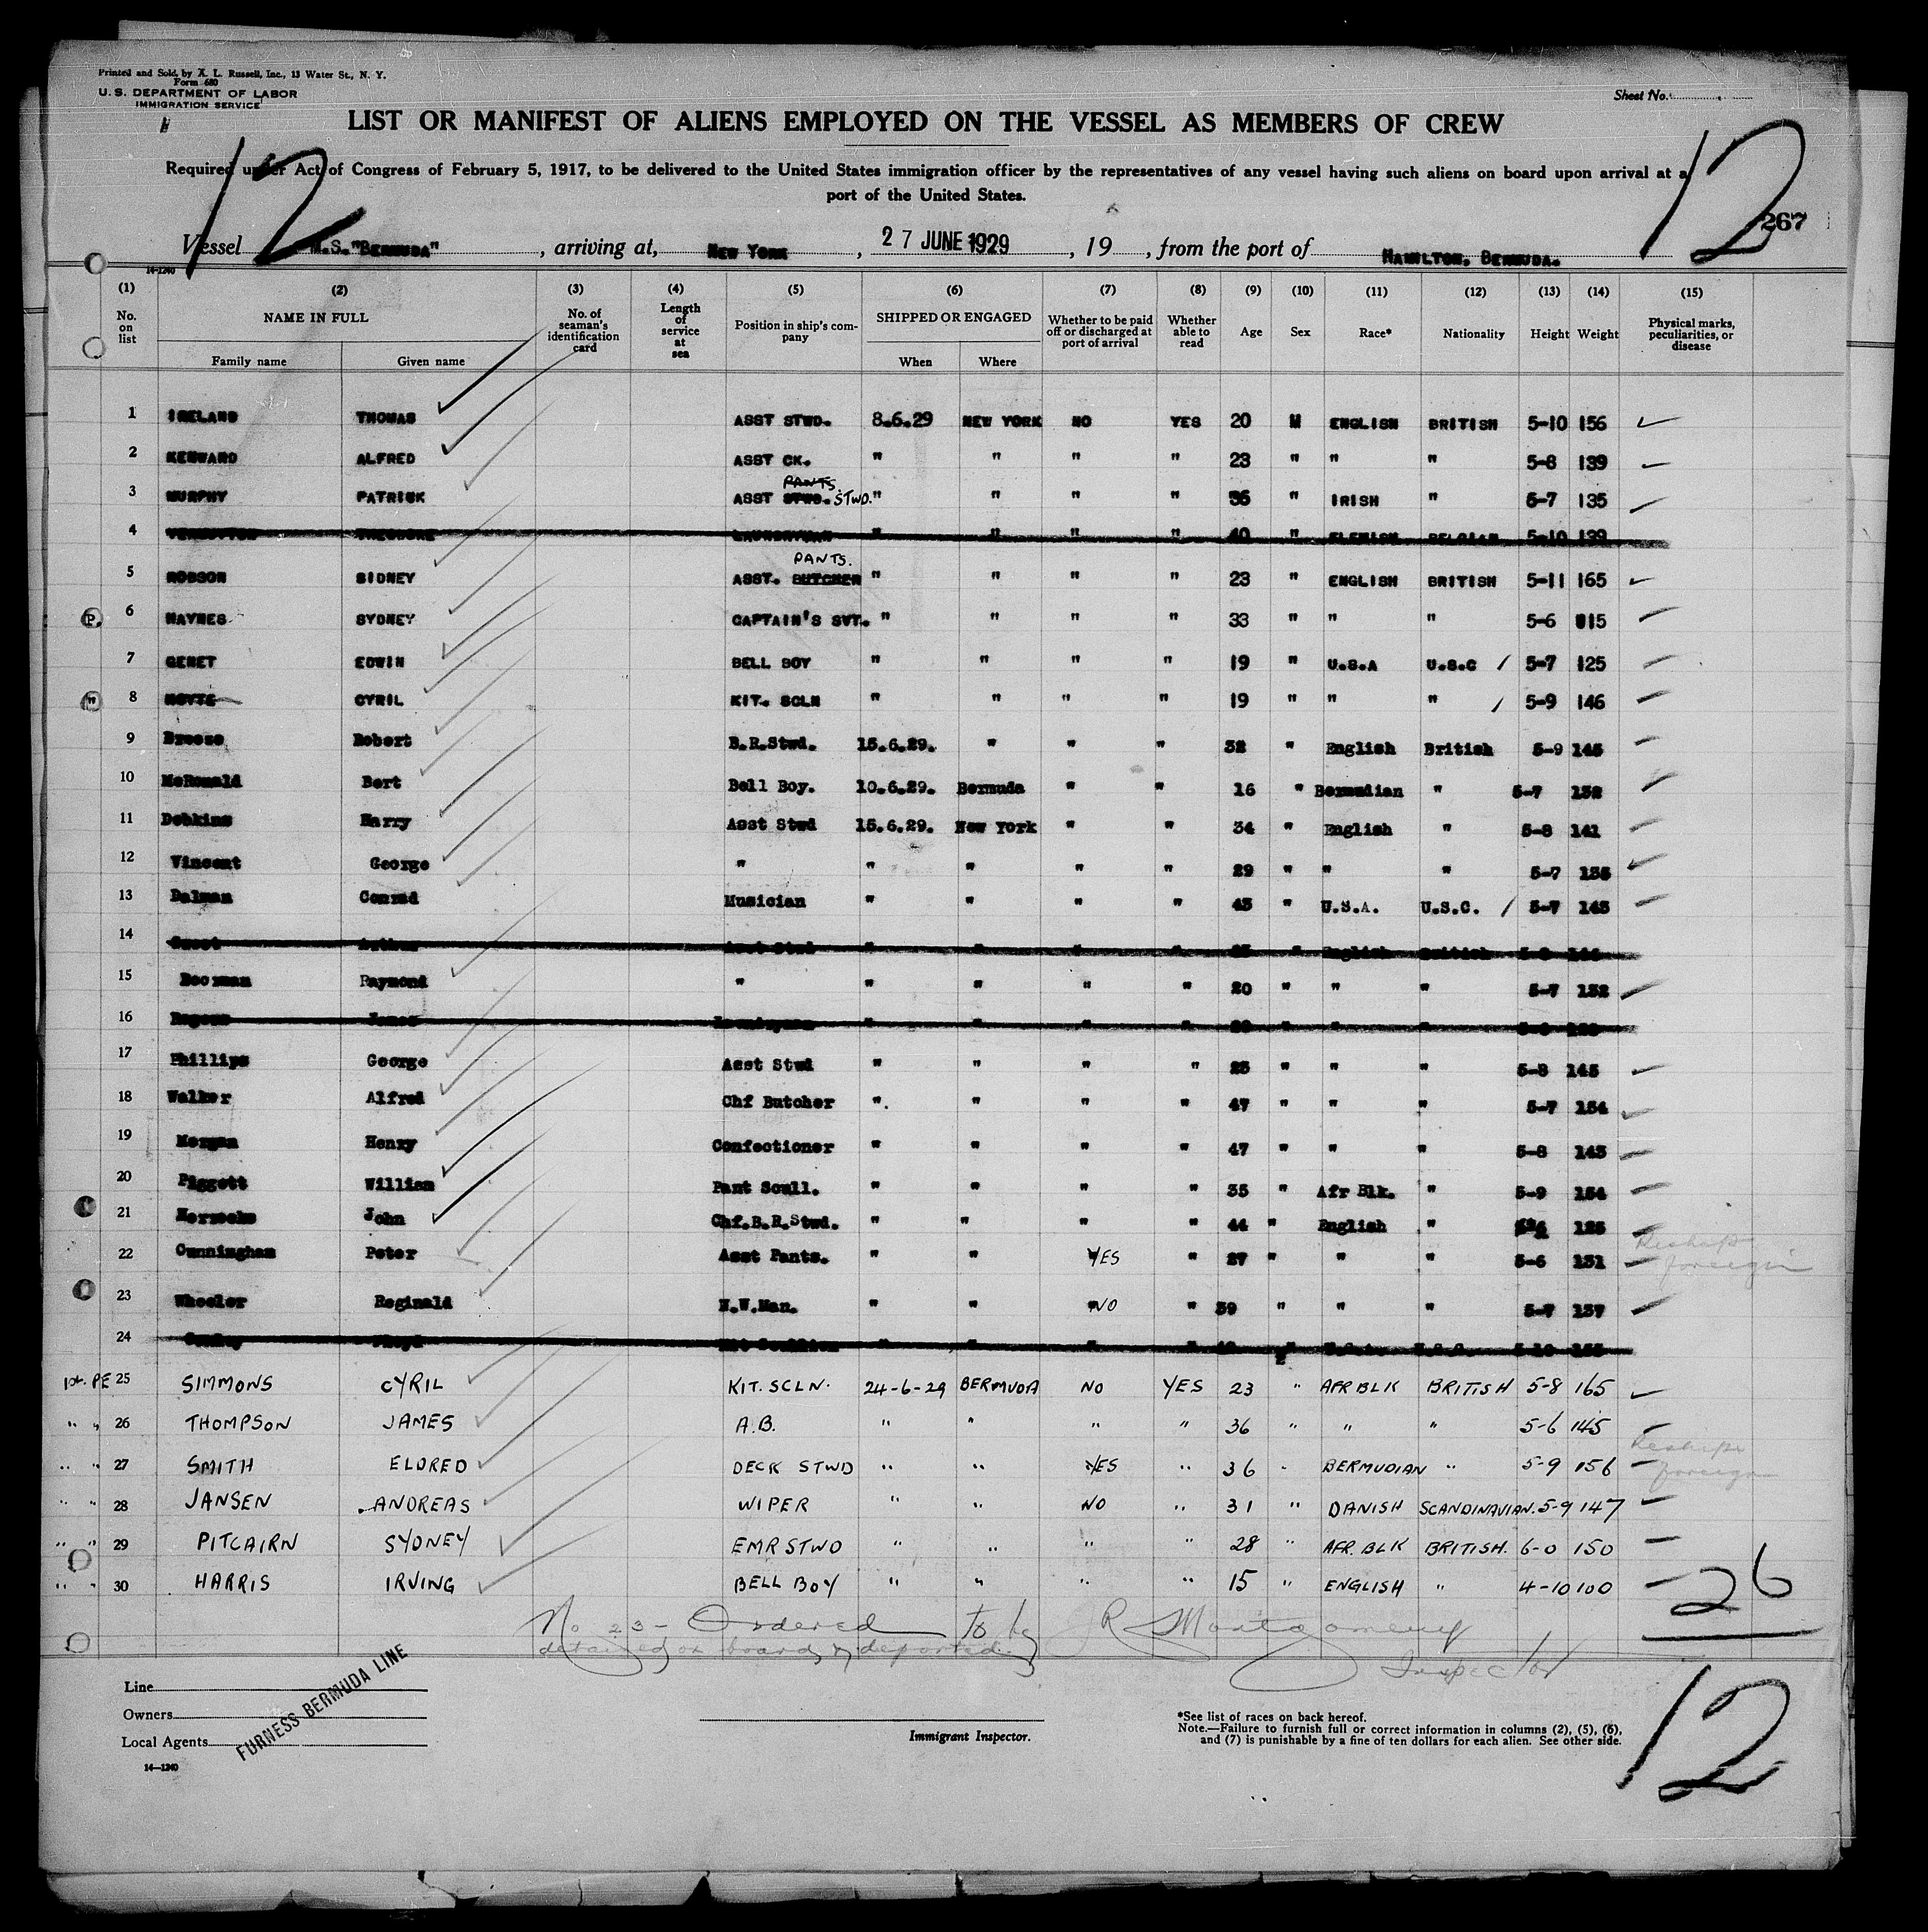 Printed and Sold by A. L. Russell, Inc., 13 Water St., N. Y.
Form 680
U. S. DEPARTMENT OF LABOR
IMMIGRATION SERVICE
Sheet No.
LIST OR MANIFEST OF ALIENS EMPLOYED ON THE VESSEL AS MEMBERS OF CREW
Required under Act of Congress of February 5, 1917, to be delivered to the United States immigration officer by the representatives of any vessel having such aliens on board upon arrival at a
port of the United States.
12 12
267
Vessel M.S. "BERMUDA", arriving at, NEW YORK, 27 JUNE 1929, 19 , from the port of HAMILTON. BERMUDA.
14-1240
(1) (2) (3) (4) (5) (6) (7) (8) (9) (10) (11) (12) (13) (14) (15)
No. on list NAME IN FULL No. of seaman's identification card Length of service at sea Position in ship's company SHIPPED OR ENGAGED Whether to be paid off or discharged at port of arrival Whether able to read Age Sex Race* Nationality Height Weight Physical marks, peculiarities, or disease
Family name Given name When Where
1 IRELAND THOMAS ASST STWD. 8.6.29 NEW YORK NO YES 20 M ENGLISH BRITISH 5-10 156
2 KENWARD ALFRED ASST CK. " " " " 23 " " " 5-8 139
PANTS.
3 MURPHY PATRICK ASST STWD. STWD. " " " " 36 " IRISH " 5-7 135
4 THEODORE LAUNDRYMAN " " " " 40 " FLEMISH BELGIAN 5-10 139
PANTS.
5 ROBSON SIDNEY ASST. BUTCHER " " " " 23 " ENGLISH BRITISH 5-11 165
P. 6 HAYNES SYDNEY CAPTAIN'S SVT. " " " " 33 " " " 5-6 115
7 GENET EDWIN BELL BOY " " " " 19 " U.S.A U.S.C 5-7 125
" 8 HOYTE CYRIL KIT. SCLN " " " " 19 " " " 5-9 146
9 Breese Robert B.R.Stwd. 15.6.29. " " " 32 " English British 5-9 145
10 McRonald Bert Bell Boy. 10.6.29. Bermuda " " 16 " Bermudian " 5-7 132
11 Dobkins Harry Asst Stwd 15.6.29. New York " " 34 " English " 5-8 141
12 Vincent George " " " " " 29 " " " 5-7 135
13 Dalman Conrad Musician " " " " 43 " U.S.A. U.S.C. 5-7 143
14 Guest Arthur Asst Stwd " " " " " English British
15 Boorman Raymond " " " " " 20 " " " 5-7 132
16 Rogers James " " " " " " "
17 Phillips George Asst Stwd " " " " 23 " " " 5-8 145
18 Walker Alfred Chf Butcher " " " " 47 " " " 5-7 154
19 Morgan Henry Confectioner " " " " 47 " " " 5-8 143
20 Piggett William Pant Scull. " " " " 35 " Afr Blk. " 5-9 154
21 John Chf.B.R.Stwd. " " " " 44 " English " 125
22 Cunningham Peter Asst Pants. " " YES " 27 " " " 5-6 131 Reship foreign
23 Wheeler Reginald N.W.Man. " " NO " 39 " " " 5-7 137
24 Floyd Kit Scullion " " " " " U.S.A. U.S.C. 5-10
PE 25 SIMMONS CYRIL KIT. SCLN. 24-6-29 BERMUDA NO YES 23 " AFR BLK BRITISH 5-8 165
" " 26 THOMPSON JAMES A.B. " " " " 36 " " " 5-6 145
" " 27 SMITH ELDRED DECK STWD " " YES " 36 " BERMUDIAN " 5-9 156 Reship foreign
" " 28 JANSEN ANDREAS WIPER " " NO " 31 " DANISH SCANDINAVIAN. 5-9 147
" " 29 PITCAIRN SYDNEY EMR STWD " " " " 28 " AFR. BLK BRITISH. 6-0 150
" " 30 HARRIS IRVING BELL BOY " " " " 15 " ENGLISH " 4-10 100
26
No 23 - Ordered to be J R Montgomery
detained on board & deported. Inspector
Line
Owners
Local Agents
FURNESS BERMUDA LINE
14—1240
Immigrant Inspector.
*See list of races on back hereof.
Note.—Failure to furnish full or correct information in columns (2), (5), (6),
and (7) is punishable by a fine of ten dollars for each alien. See other side.
12